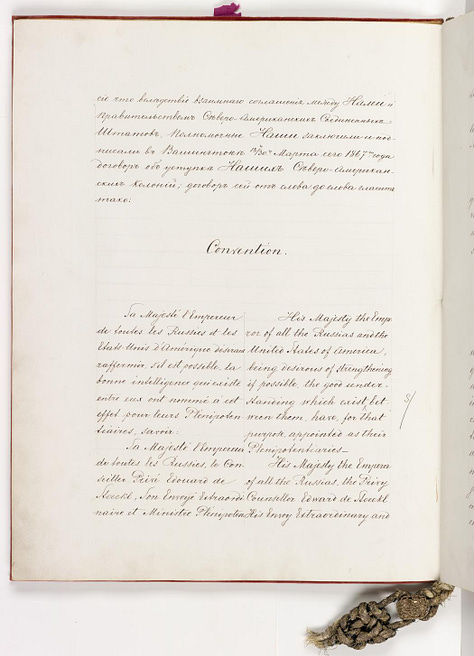 сіе что вслѣдствіе взаимнаго соглашенія между Нами и
Правительствомъ Сѣверо-Американскихъ Соединенныхъ
Штатовъ, Полномочные Наши заключили и под-
писали въ Вашингтонѣ 18/30го Марта сего 1867го года
договоръ объ уступкѣ Нашихъ Сѣверо-Американ-
скихъ Колоній; договоръ сей отъ слова до слова гласитъ
тако:
Convention.
Sa Majesté l'Empereur
de toutes les Russies et les
Etats Unis d'Amérique désirant
raffermir, s'il est possible, la
bonne intelligence qui existe
entre eux ont nommé à cet
effet pour leurs Plénipoten
tiaires, savoir:
Sa Majesté l'Empereur
de toutes les Russies, le Con
seiller Privé Edouard de
Stoeckl, Son Envoyé Extraordi
naire et Ministre Plénipoten
His Majesty the Empe
ror of all the Russias and the
United States of America,
being desirous of strengthening
if possible, the good under-
standing which exist bet
ween them, have, for that
purpose, appointed as their
Plenipotentiaries
His Majesty the Empera
of all the Russias, the Privy
Counsellor Edward de Stoeckl
His Envoy Extraordinary and